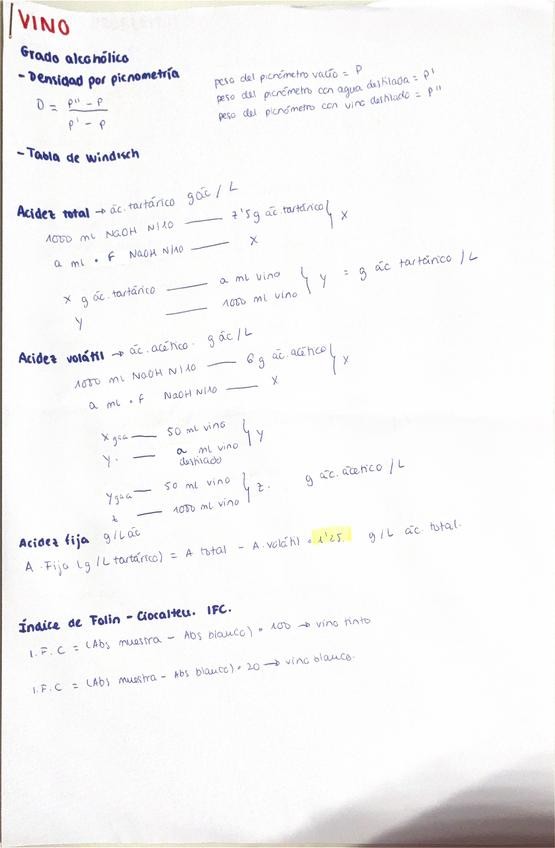 VINO
Grado alcohólico
- Densidad por picnometría
D = P'' - P / P' - P
peso del picnómetro vacío = P
peso del picnómetro con agua destilada = P'
peso del picnómetro con vino destilado = P''
- Tabla de Windisch
Acidez total → ác. tartárico g ác / L
1000 ml NaOH N/10 —— 7'5 g ác. tartárico } X
a ml · F NaOH N/10 —— X
X g ác. tartárico —— a ml vino } Y = g ác tartárico / L
Y —— 1000 ml vino
Acidez volátil → ác. acético. g ác / L
1000 ml NaOH N/10 —— 6 g ác. acético } X
a ml · F NaOH N/10 —— X
X gaa —— 50 ml vino } Y
Y. —— a ml vino
destilado
Y gaa —— 50 ml vino } Z. g ác. acético / L
Z —— 1000 ml vino
Acidez fija g / L ác
A. Fija (g / L tartárico) = A total - A. volátil · 1'25. g / L ác total.
Índice de Folin - Ciocalteu. IFC.
I.F.C = (Abs muestra - Abs blanco) · 100 → vino tinto
I.F.C = (Abs muestra - Abs blanco) · 20 → vino blanco.